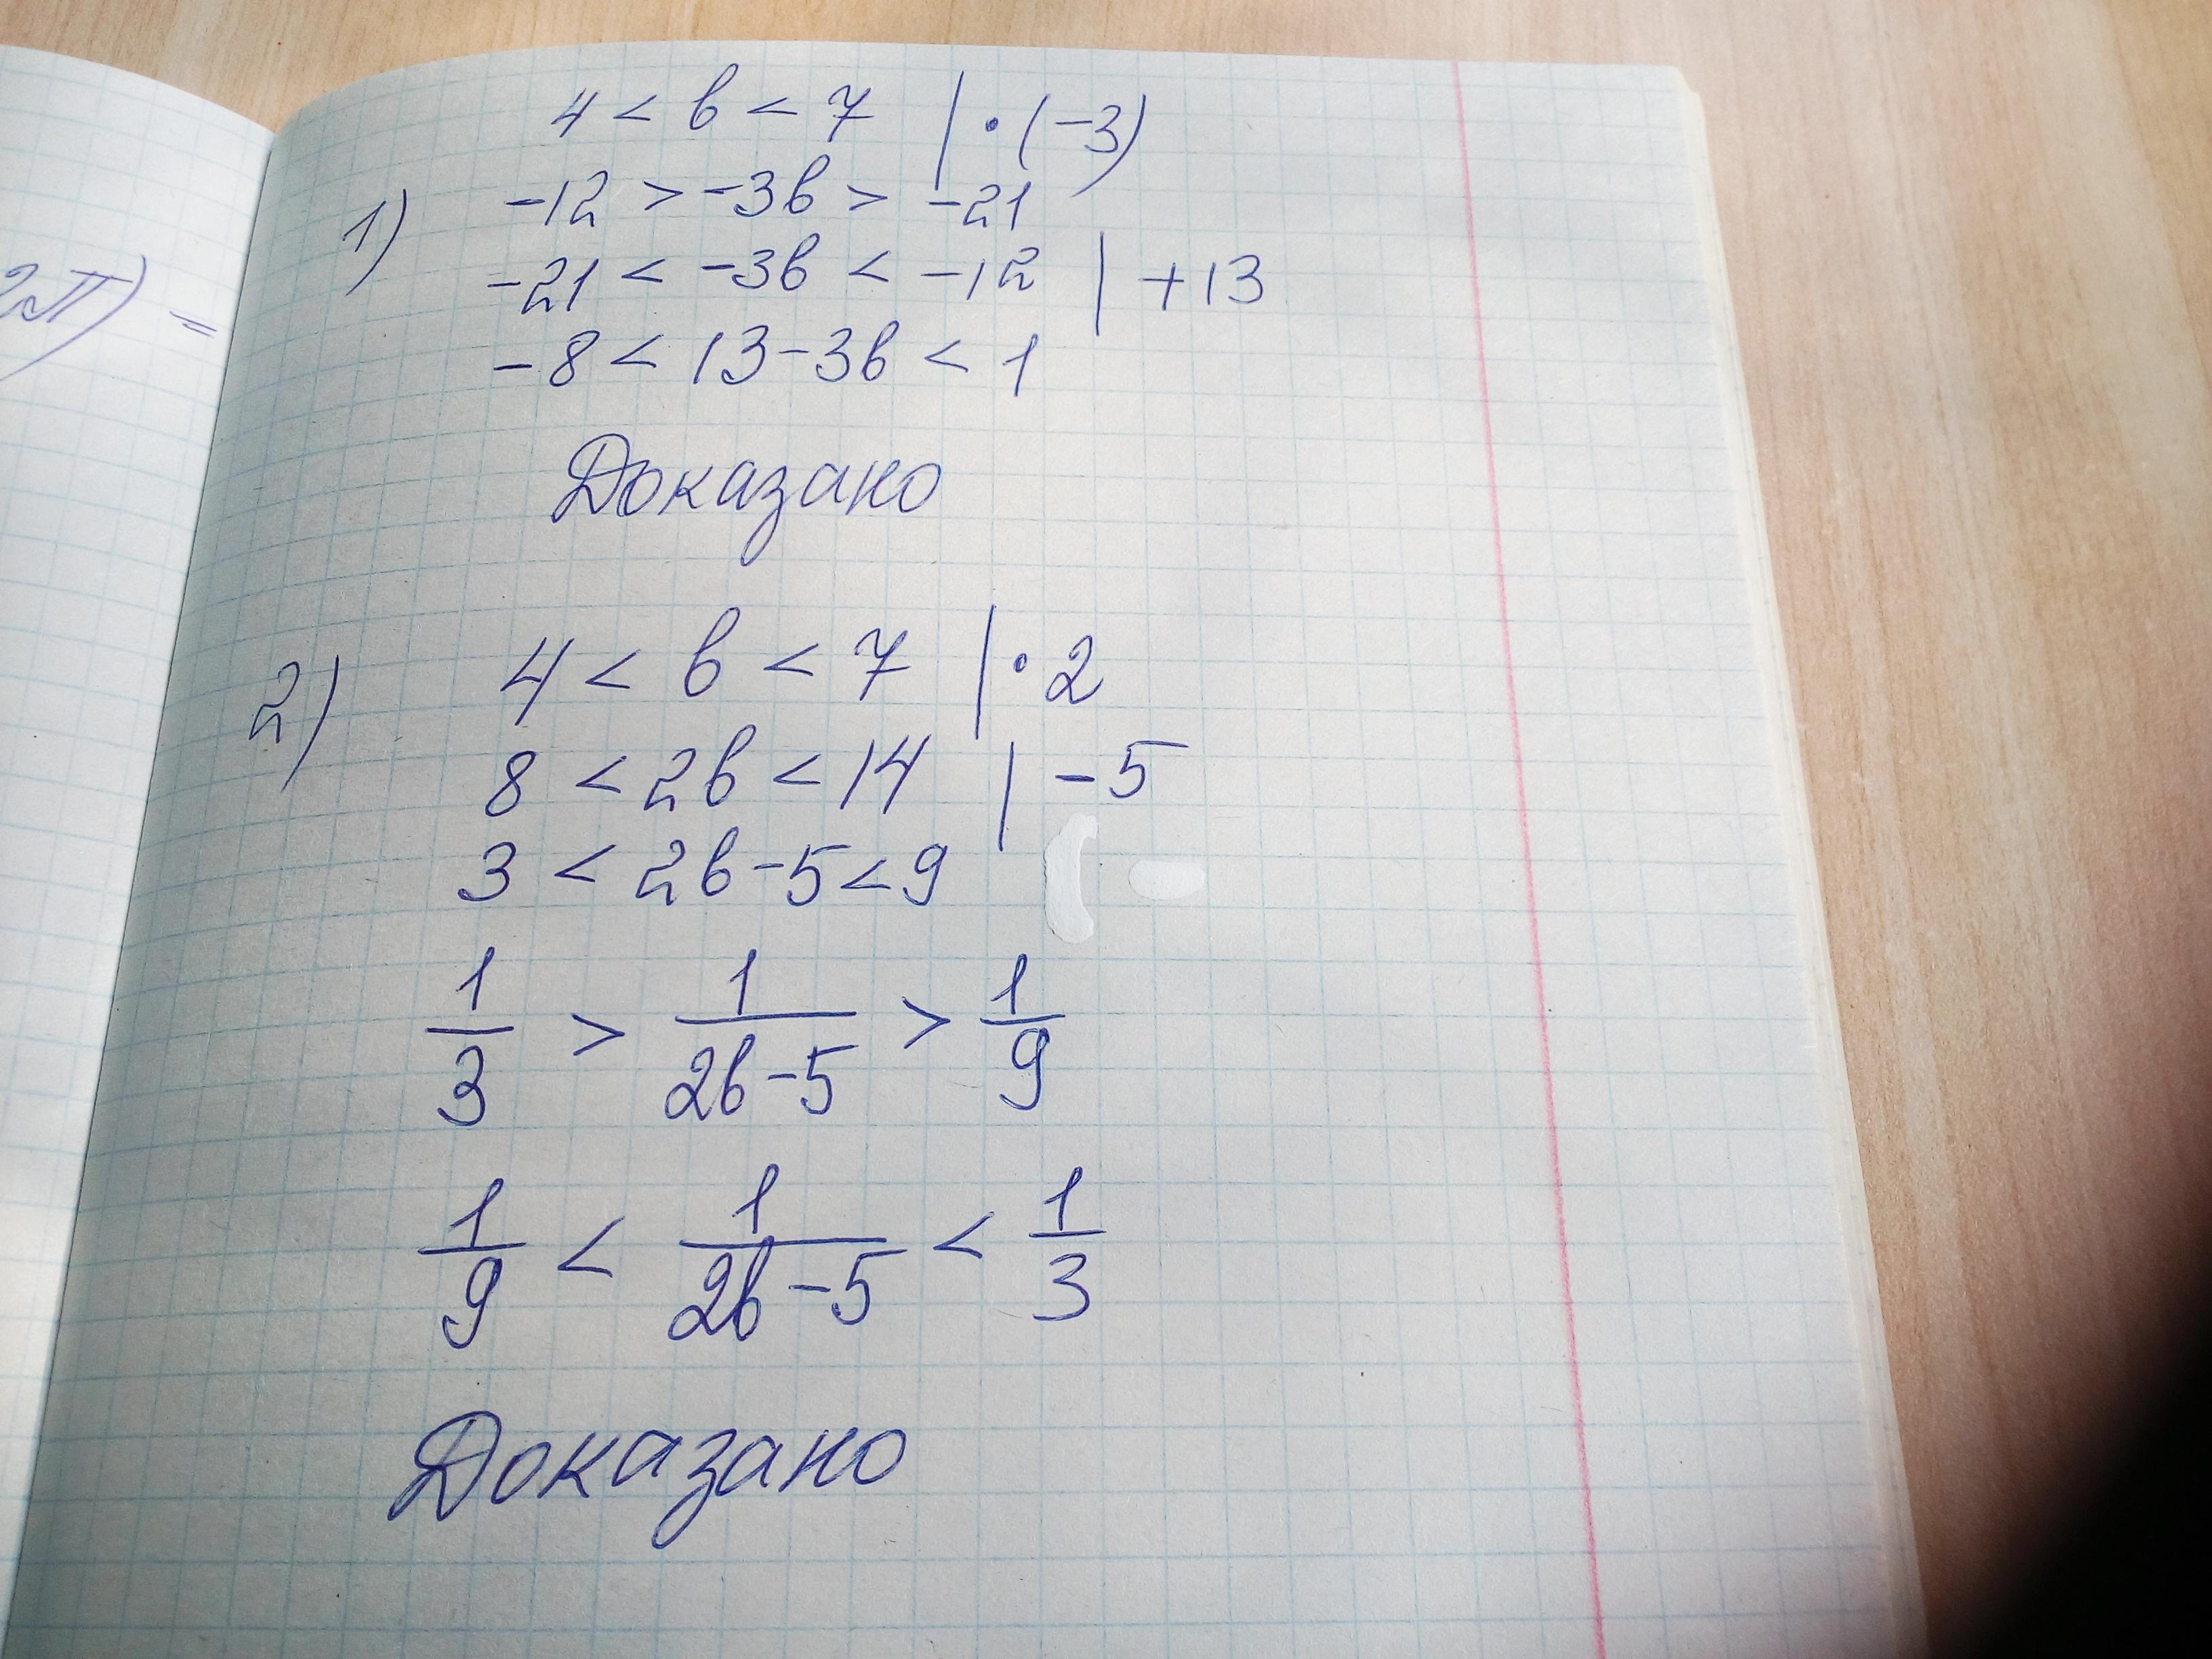 2π) =
4 < в < 7 | · (-3)
1) -12 > -3в > -21
-21 < -3в < -12 | +13
-8 < 13-3в < 1
Доказано
2) 4 < в < 7 | · 2
8 < 2в < 14 | -5
3 < 2в-5 < 9
1/3 > 1/(2в-5) > 1/9
1/9 < 1/(2в-5) < 1/3
Доказано